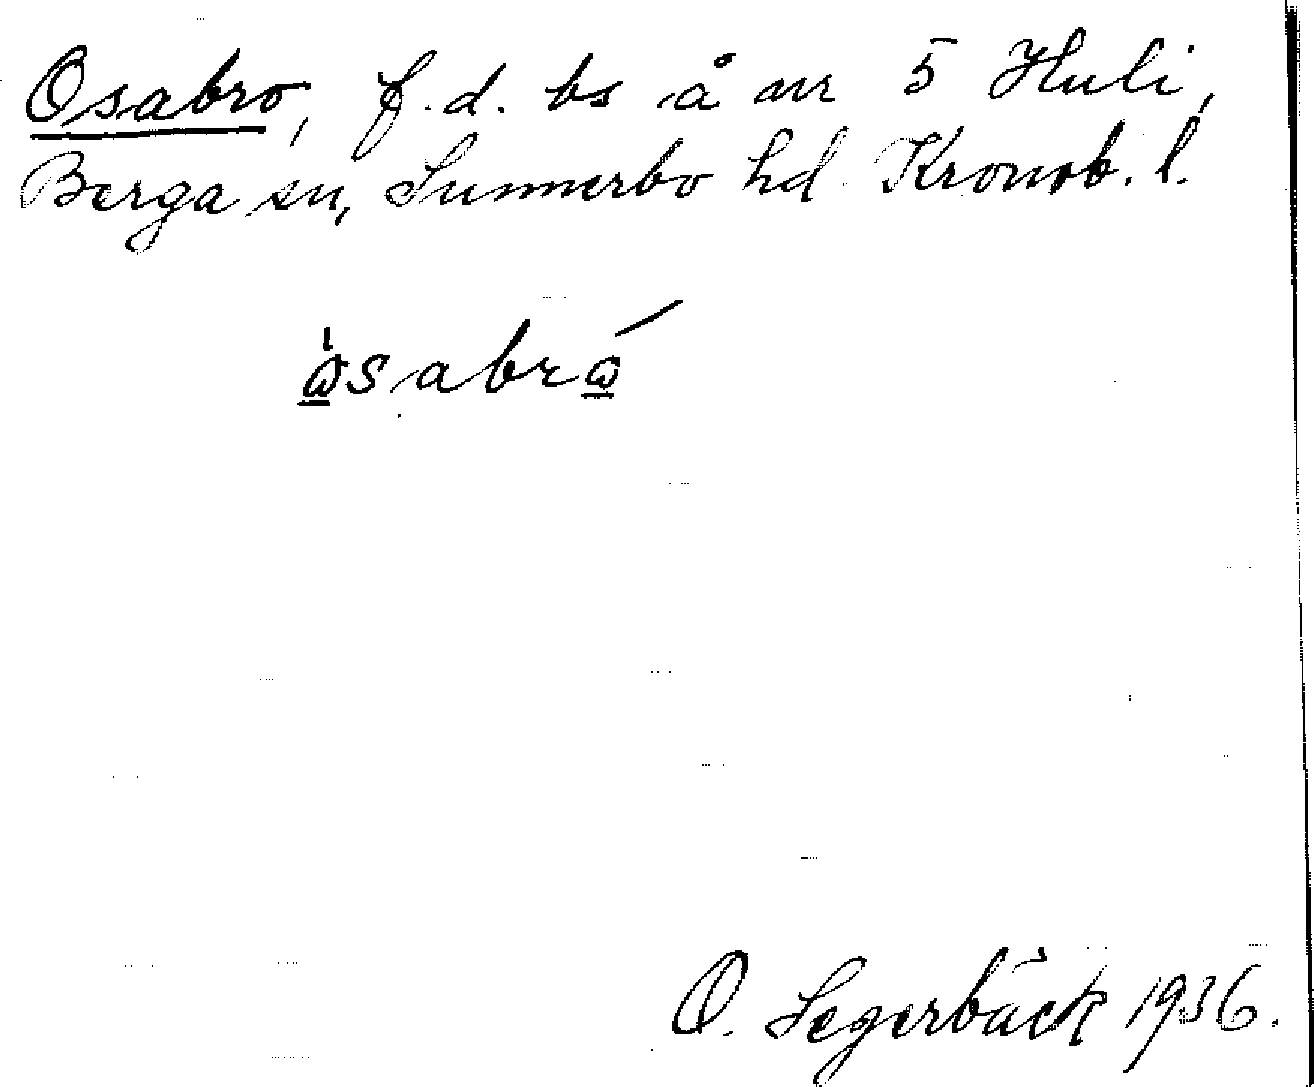 Osabro, f.d. bs å nr 5 Huli,
Berga sn, Sunnerbo hd. Kronob. l.
o̲sabro̲
O. Segerbäck 1936.